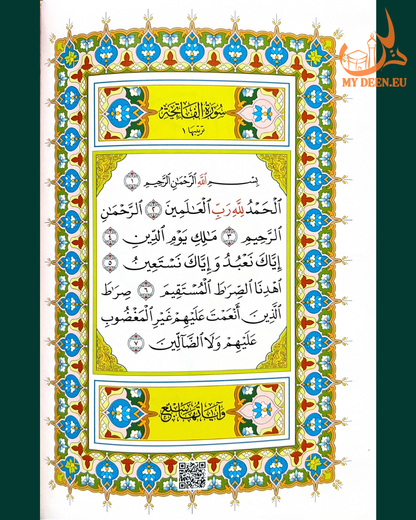 MY DEEN.EU
سورة الفاتحة
ترتيبها ١
بِسْمِ اللَّهِ الرَّحْمَٰنِ الرَّحِيمِ ١
الْحَمْدُ لِلَّهِ رَبِّ الْعَالَمِينَ ٢ الرَّحْمَٰنِ
الرَّحِيمِ ٣ مَالِكِ يَوْمِ الدِّينِ ٤
إِيَّاكَ نَعْبُدُ وَإِيَّاكَ نَسْتَعِينُ ٥
اهْدِنَا الصِّرَاطَ الْمُسْتَقِيمَ ٦ صِرَاطَ
الَّذِينَ أَنْعَمْتَ عَلَيْهِمْ غَيْرِ الْمَغْضُوبِ
عَلَيْهِمْ وَلَا الضَّالِّينَ ٧
وآياتها سبع